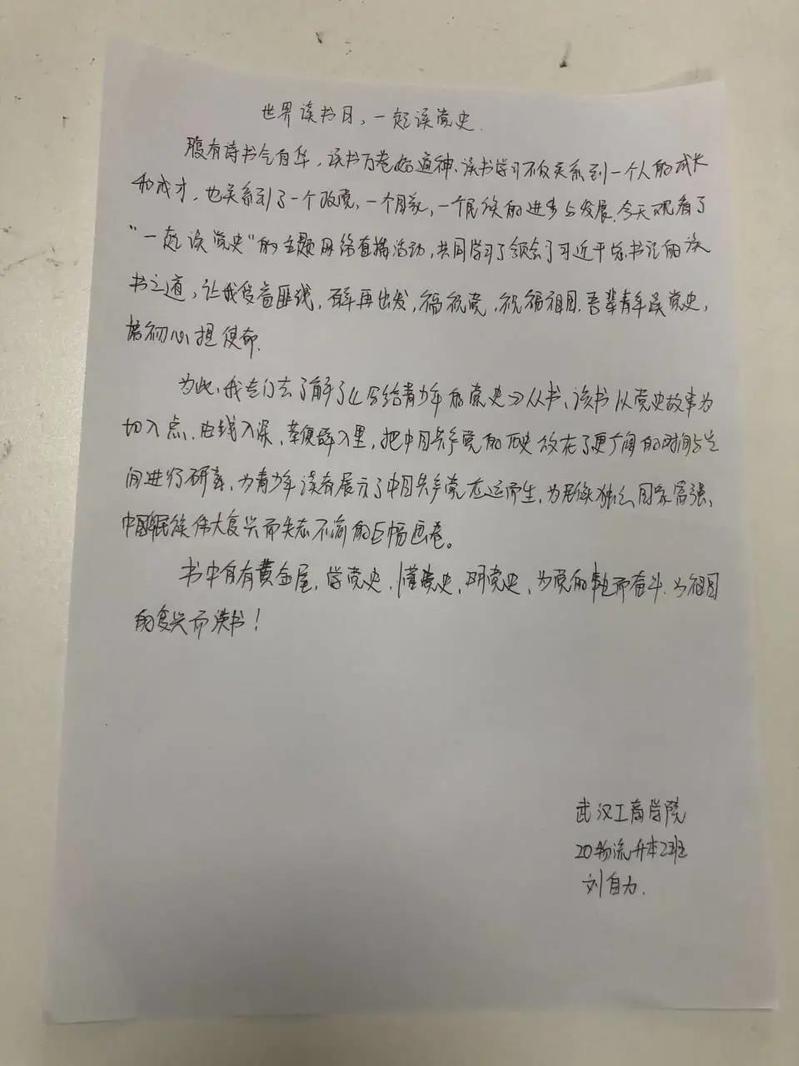 世界读书日，一起读党史.
腹有诗书气自华，读书万卷始通神.读书学习不仅关系到一个人的成长
和成才，也关系到了一个政党，一个国家，一个民族的进步与发展.今天观看了
“一起读党史”的主题网络直播活动，共同学习了领会了习近平总书记的读
书之道，让我受益匪浅，再出发，祝福祖国.吾辈青年读党史，
初心担使命.
为此，我专门去了解了《写给青少年的党史》丛书，该书从党史故事为
切入点.由浅入深，辟入里，把中国共产党的历史放在了更广阔的时间与空
间进行研，为青少年读者展示了中国共产党应运而生，为国家富强、
中国民族伟大复兴而矢志不渝的巨幅画卷。
书中自有黄金屋，学党史，懂党史，明党史，为党的而奋斗.为祖国
的复兴而读书！
武汉工商学院
20物流升本2班
刘自力.